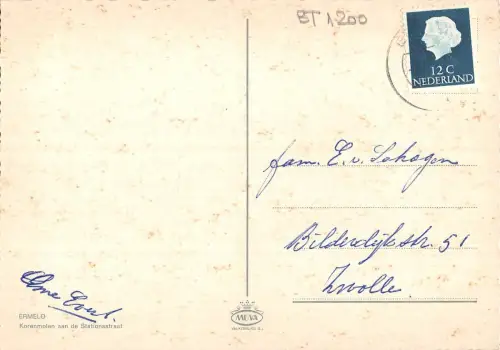 BT 1200
12 C
NEDERLAND
fam. E. v. Schagen
Bilderdijkstr. 51
Zwolle.
Evert.
ERMELO
Korenmolen aan de Stationsstraat
MUVA
VALKENBURG (L.)